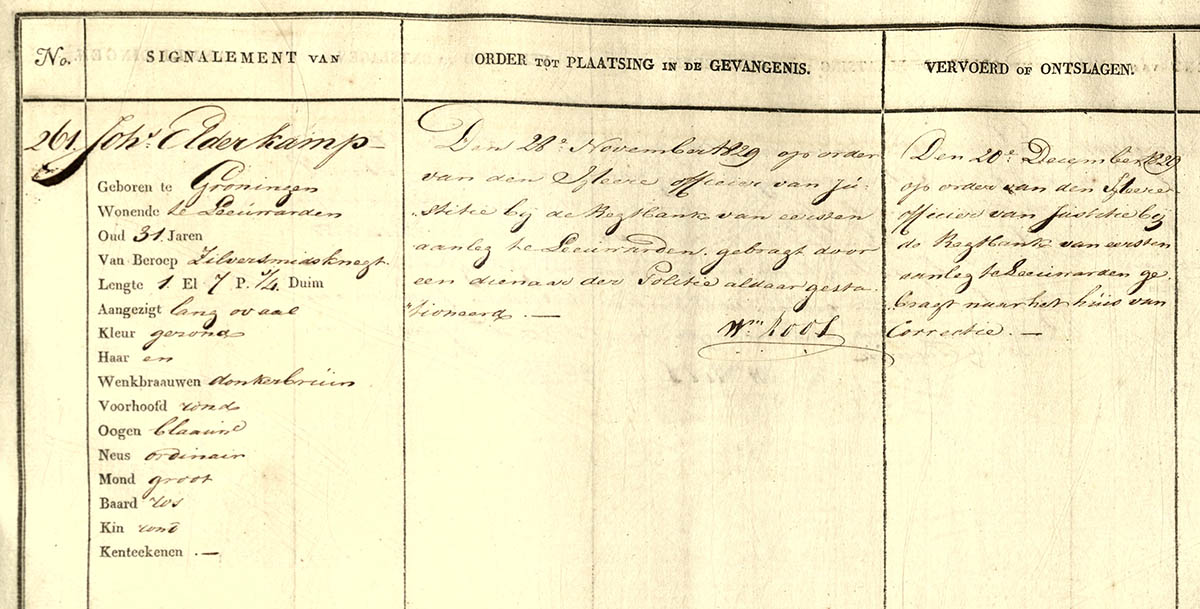 No.
SIGNALEMENT VAN
ORDER TOT PLAATSING IN DE GEVANGENIS.
VERVOERD OF ONTSLAGEN.
261. Joh.s Elderkamp
Geboren te Groningen
Wonende te Leeuwarden
Oud 31 Jaren
Van Beroep Zilversmidsknegt
Lengte 1 El 7 P. ¼ Duim
Aangezigt lang ovaal
Kleur gezond
Haar en
Wenkbraauwen donkerbruin
Voorhoofd rond
Oogen blaauw
Neus ordinair
Mond groot
Baard ros
Kin rond
Kenteekenen . —
Den 28e November 1829 op order
van den Heere officier van Ju-
stitie bij de Regtbank van eersten
aanleg te Leeuwarden. gebragt door
een dienaar der Politie aldaar gesta
tioneerd. —
Wm. Roos
Den 20e December 1829
op order van den Heere
officier van Justitie bij
de Regtbank van eersten
aanleg te Leeuwarden ge
bragt naar het huis van
Correctie. —